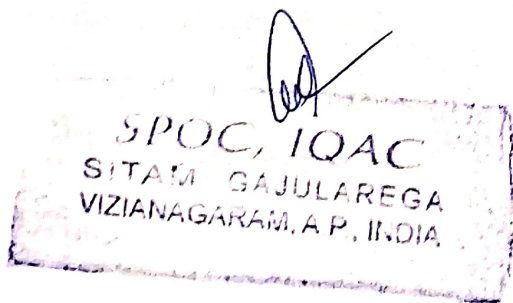 SPOC, IQAC
SITAM GAJULAREGA
VIZIANAGARAM, A.P., INDIA